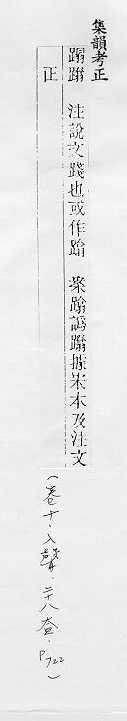 集韻考正
蹹蹹 注說文踐也或作蹹 案蹹譌蹹據宋本及注文
正
(卷十.入聲.二十八盍.P722)